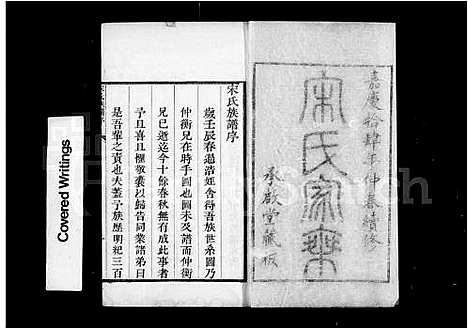 嘉慶拾肆年仲春續修
宋氏家乘
承啟堂藏板
宋氏族譜序
歲壬辰春過浩經舍得吾族世系圖乃
仲衡兄在時手圖也圖未及譜而仲衡
兄已逝迄今十餘春秋無有成此事者
予且喜且懼敬裒以歸告同業諸弟曰
是吾輩之責也夫蓋予族歷明紀三百
Covered Writings